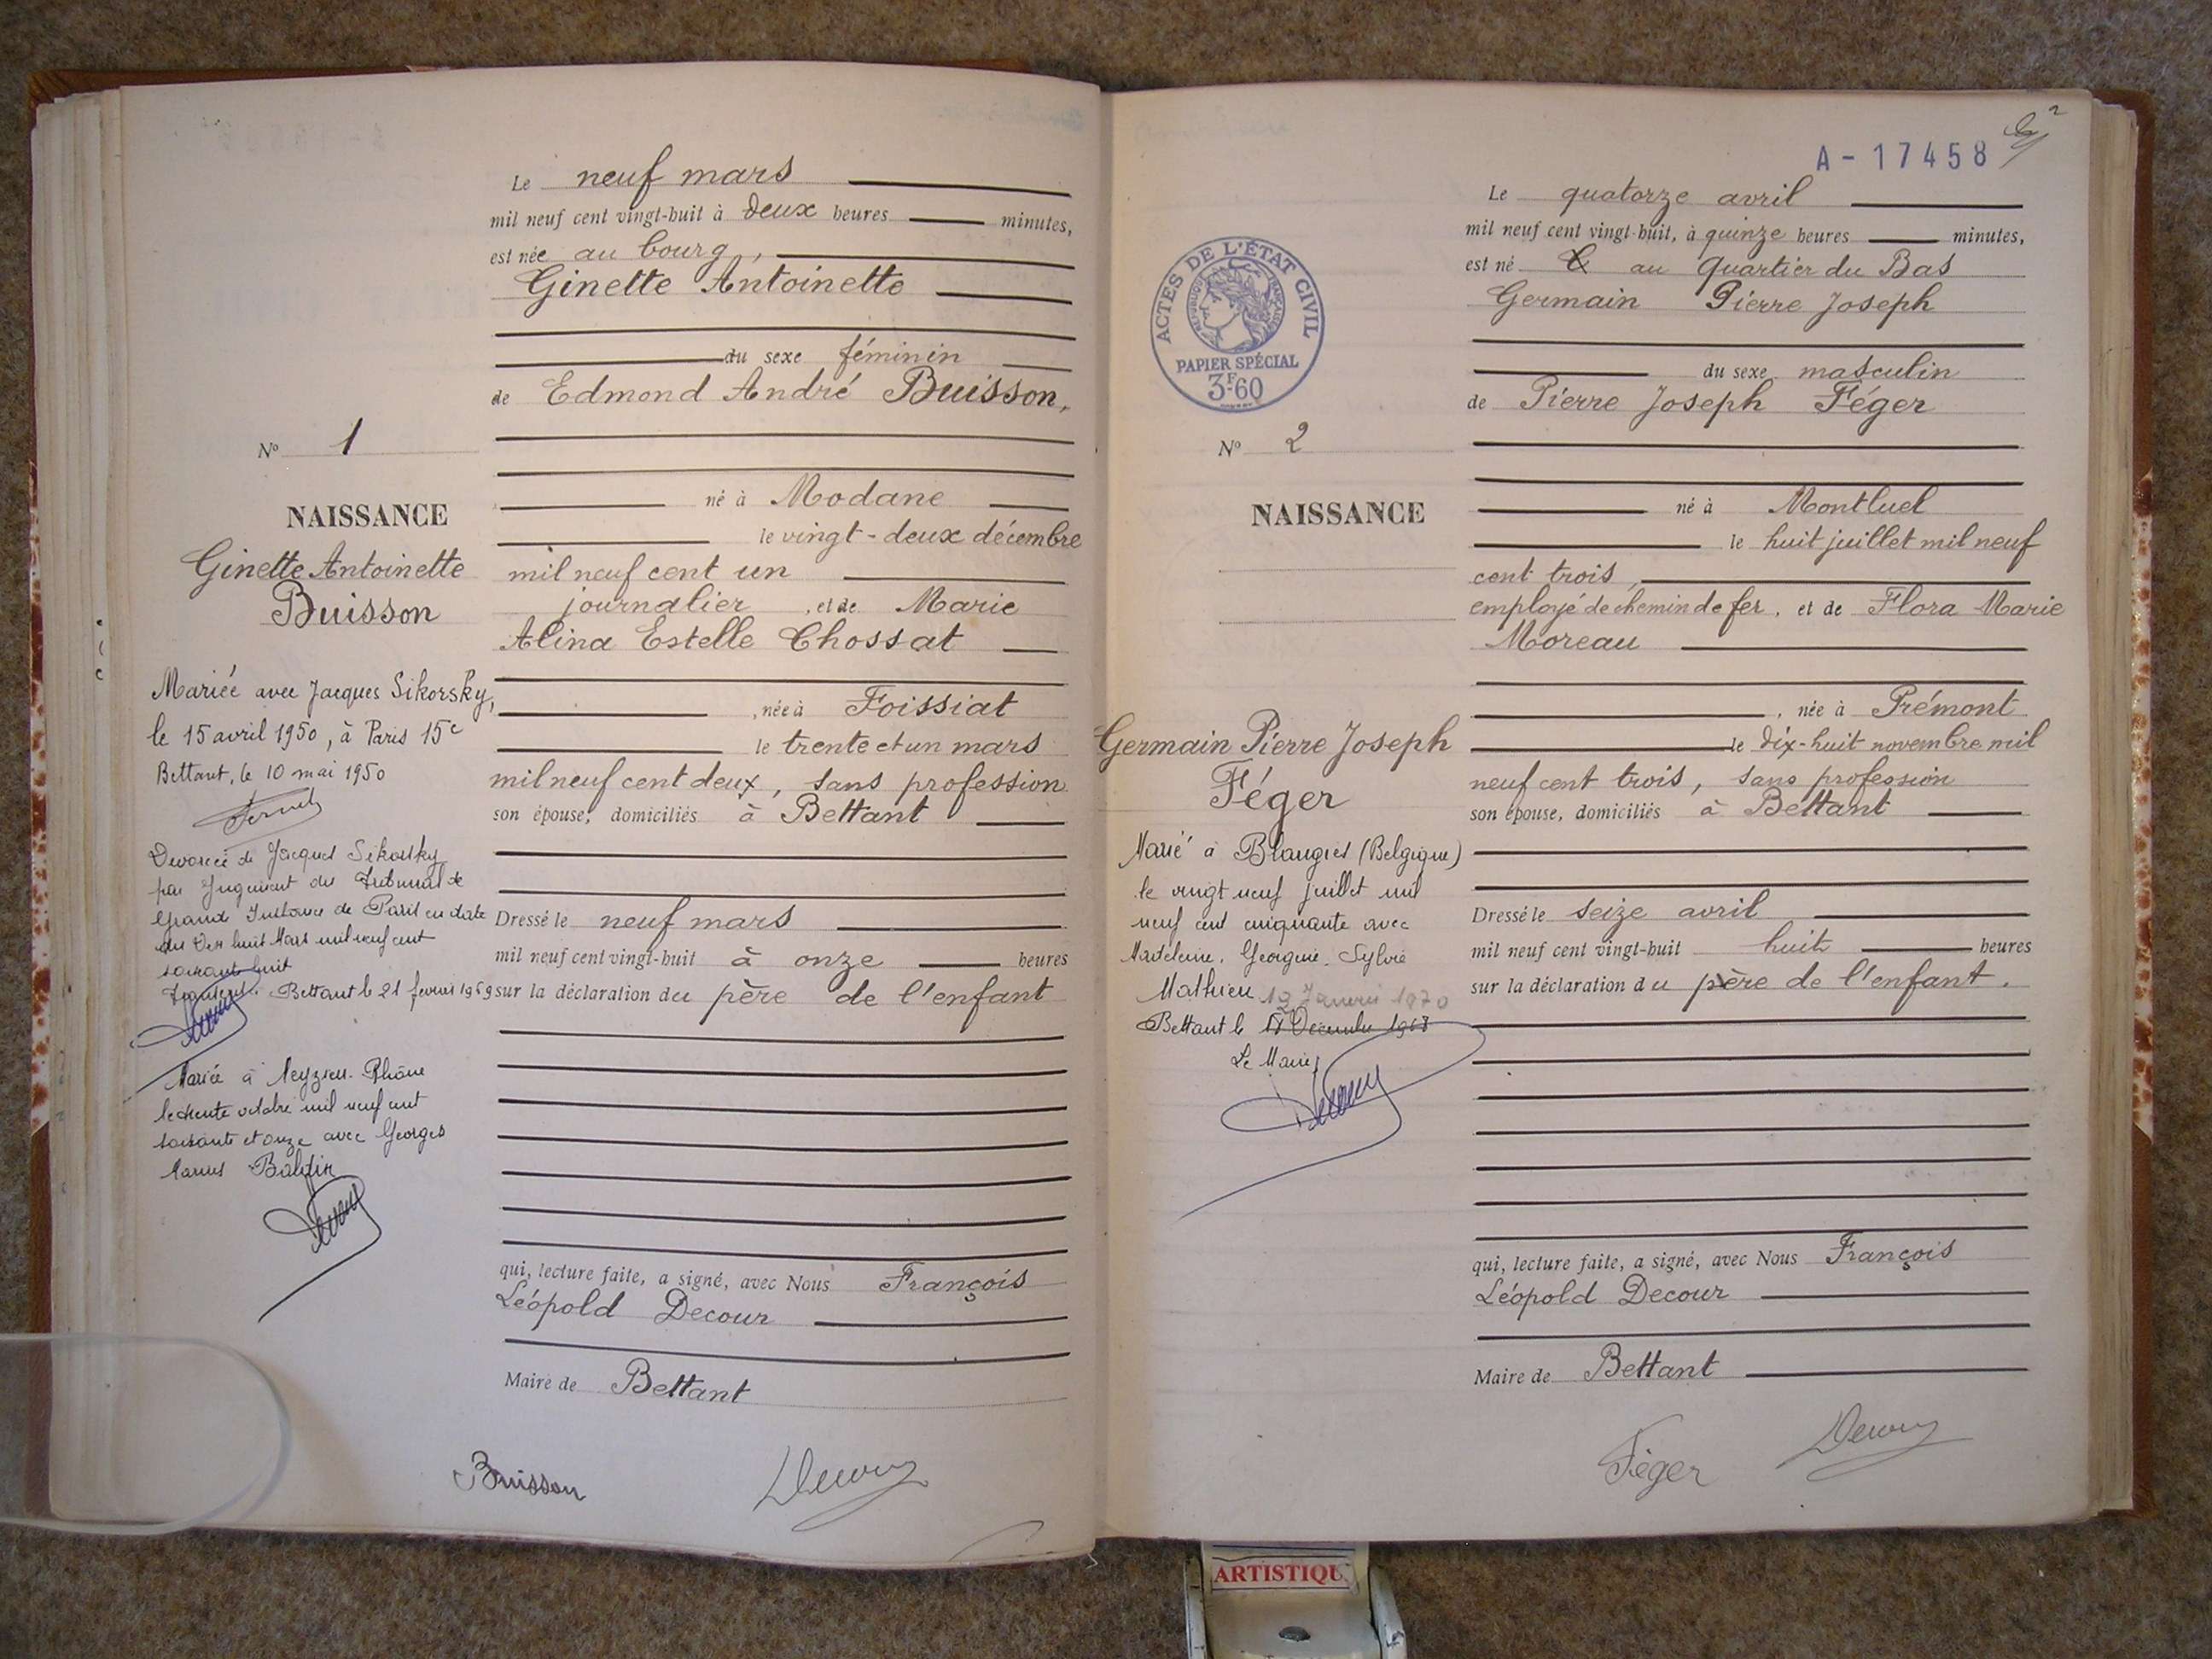 Le neuf mars
mil neuf cent vingt-huit à deux heures minutes,
est née au bourg,
Ginette Antoinette
du sexe féminin
de Edmond André Buisson,
né à Modane
le vingt-deux décembre
mil neuf cent un
journalier, et de Marie
Alina Estelle Chossat
, née à Foissiat
le trente et un mars
mil neuf cent deux, sans profession
son épouse, domiciliés à Bettant
Dressé le neuf mars
mil neuf cent vingt-huit à onze heures
sur la déclaration du père de l'enfant
qui, lecture faite, a signé, avec Nous François
Léopold Decour
Maire de Bettant
Buisson
N° 1
NAISSANCE
Ginette Antoinette
Buisson
Mariée avec Jacques Sikorsky,
le 15 avril 1950, à Paris 15e
Bettant, le 10 mai 1950
Divorcée de Jacques Sikorsky
par Jugement du Tribunal de
Grande Instance de Paris en date
du Dix huit Mars mil neuf cent
soixante huit
Bettant le 21 février 1969
Mariée à Meyzieu-Rhône
le trente octobre mil neuf cent
soixante et onze avec Georges
Marius
A-17458
2
Le quatorze avril
mil neuf cent vingt-huit, à quinze heures minutes,
est né au Quartier du Bas
Germain Pierre Joseph
du sexe masculin
de Pierre Joseph Féger
né à Montluel
le huit juillet mil neuf
cent trois,
employé de chemin de fer, et de Flora Marie
Moreau
, née à Prémont
le dix-huit novembre mil
neuf cent trois, sans profession
son épouse, domiciliés à Bettant
Dressé le seize avril
mil neuf cent vingt-huit huit heures
sur la déclaration du père de l'enfant.
qui, lecture faite, a signé, avec Nous François
Léopold Decour
Maire de Bettant
Féger
ACTES DE L'ÉTAT CIVIL
RÉPUBLIQUE FRANÇAISE
PAPIER SPÉCIAL
3F60
N° 2
NAISSANCE
Germain Pierre Joseph
Féger
Marié à Blaugies (Belgique)
le vingt neuf juillet mil
neuf cent cinquante avec
Madeleine, Georgine, Sylvie
Mathieu 12 Janvier 1970
Bettant le Décembre
Le Maire,
ARTISTIQU